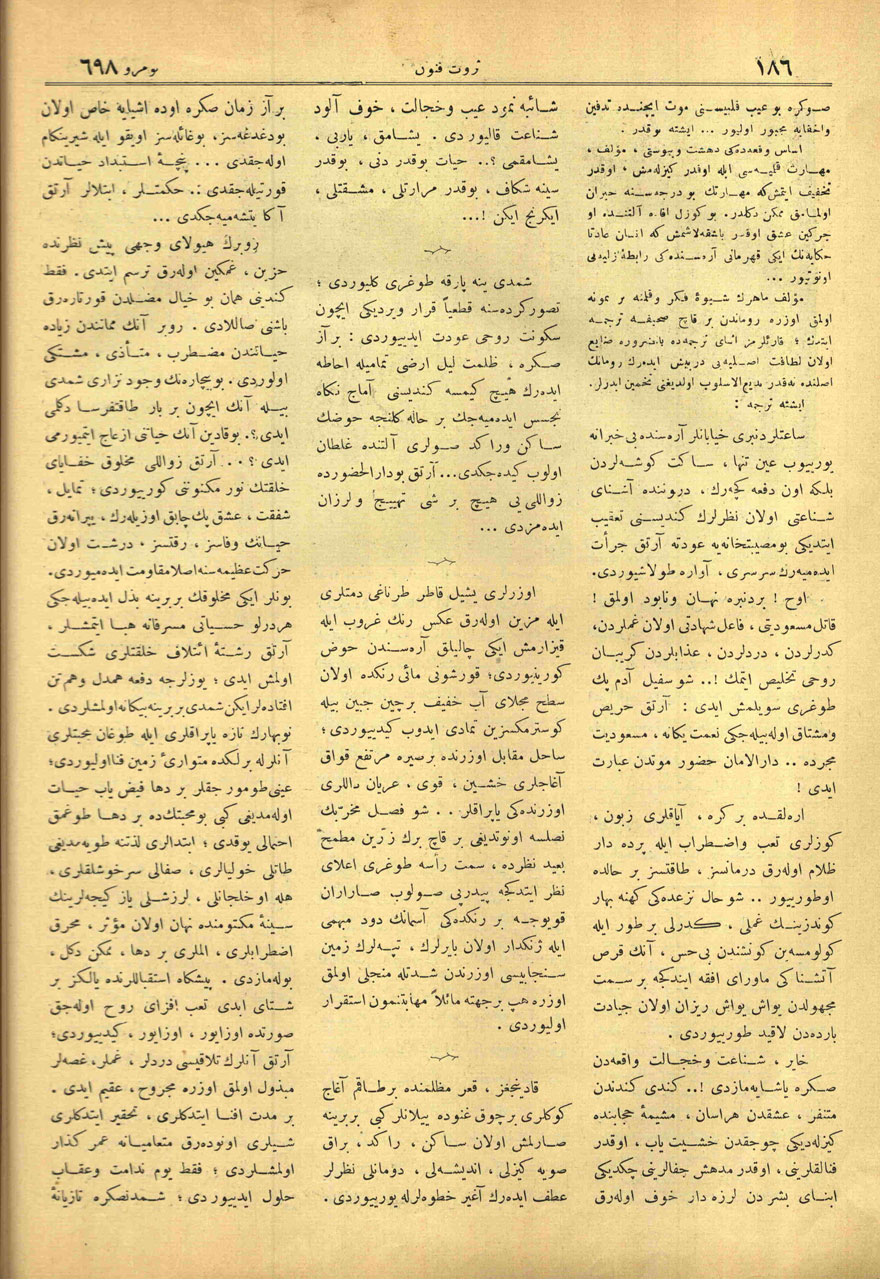 ١٨٦
ثروت فنون
نومرو ٦٩٨
صوكره بو عيب قلبيسنى موت ايچنده تدفين
واخفايه مجبور اوليور ... ايشته بوقدر .
اساس وقعه‌ده‌كى دهشت ويبوستى ، مؤلف ،
مهارت قلميه‌سى ايله اوقدر كيزله‌مش ، اوقدر
تخفيف ايتمش كه مهارتك بو درجه‌سنه حيران
اولمامق ممكن دكلدر . بو كوزل افاده آلتنده او
چركين عشق اوقدر باشقه‌لاشمش كه انسان عادتا
حكايه‌نك ايكى قهرمانى آره‌سنده‌كى رابطۀ زليله‌يى
اونوتيور ...
مؤلف ماهرك شيوۀ فكر وقلمنه بر نمونه
اولمق اوزره روماندن بر قاچ صحيفه ترجمه
ايتدك ؛ قارئلرمز اثناى ترجمه‌ده بالضروره ضايع
اولان لطافت اصليه‌يى درپيش ايده‌رك رومانك
اصلنده نه‌قدر بديع الاسلوب اولديغنى تخمين ايدرلر .
ايشته ترجمه :
ساعتلردنبرى خيابانلر آره‌سنده بى خبرانه
يورييوب عين تنها ، ساكت كوشه‌لردن
بلكه اون دفعه كچه‌رك ، دروننده آشناى
شناعتى اولان نظرلرك كنديسنى تعقيب
ايتديكى بو مصيبتخانه‌يه عودته آرتق جرأت
ايده‌ميه‌رك سرسرى ، آواره طولاشيوردى.
اوح ! بردنبره نهان ونابود اولمق !
قاتل مسعوديتى ، فاعل شهادتى اولان غملردن،
كدرلردن ، دردلردن ، عذابلردن كريبان
روحى تخليص ايتمك !.. شو سفيل آدم پك
طوغرى سويلمش ايدى : آرتق حريص
ومشتاق اوله‌بيله‌جكى نعمت يكانه ، مسعوديت
مجرده .. دارالامان حضور موتدن عبارت
ايدى !
اره‌لقده بر كره ، آياقلرى زبون ،
كوزلرى تعب واضطراب ايله پرده دار
ظلام اوله‌رق درمانسز ، طاقتسز بر حالده
اوطورييور .. شو حال نزعده‌كى كهنه بهار
كوندزينك غملى ، كدرلى بر طور ايله
كولومسه‌ين كونشندن بى‌حس ، آنك قرص
آتشناكى ماوراى افقه ايندكجه بر سمت
مجهولدن يواش يواش ريزان اولان جيادت
بارده‌دن لاقيد طورييوردى .
خاير ، شناعت وخجالت واقعه‌دن
صكره ياشايه‌مازدى !.. كندى كندندن
متنفر ، عشقدن هراسان ، مشيمۀ حجابنده
كيزله‌ديكى چوجقدن خشيت ياب ، اوقدر
فنالقلرينى ، اوقدر مدهش جفالرينى چكديكى
ابناى بشردن لرزه دار خوف اوله‌رق
شائبه نمود عيب وخجالت ، خوف آلود
شناعت قاليوردى . يشامق ، ياربى ،
يشامقمى ؟.. حيات بوقدر دنى ، بوقدر
سينه شكاف ، بوقدر مرارتلى ، مشقتلى ،
ايكرنج ايكن !...
شمدى ينه پارقه طوغرى كليوردى ؛
تصوركرده‌سنه قطعياً قرار ويرديكى ايچون
سكونت روحى عودت ايدييوردى : بر آز
صكره ، ظلمت ليل ارضى تماميله احاطه
ايده‌رك هيچ كيمسه كنديسنى آماج نكاه
تجسس ايده‌ميه‌جك بر حاله كلنجه حوضك
ساكن وراكد صولرى آلتنده غلطان
اولوب كيده‌جكدى... آرتق بودارالحضورده
زواللى يى هيچ بر شى تهييج ولرزان
ايده‌مزدى ...
اوزرلرى يشيل قاطر طرناغى دمتلرى
ايله مزين اوله‌رق عكس رنك غروب ايله
قيزارمش ايكى چاليلق آره‌سندن حوض
كورينيوردى؛ قورشونى مائى رنكده اولان
سطح مجلاى آب خفيف بر چين جبين بيله
كوسترمكسزين تمادى ايدوب كيدييوردى ؛
ساحل مقابل اوزرنده بر صيره مرتفع قواق
آغاجلرى خشين ، قوى ، عريان داللرى
اوزرنده‌كى ياپراقلر . . شو فصل مخربك
نصلسه اونوتديغى بر قاچ برك زرين مطمح
بعيد نظرده ، سمت رأسه طوغرى اعلاى
نظر ايتدكجه پيدرپى صولوب صاراران
قويوجه بر رنكده‌كى آسمانك دود مبهمى
ايله ژنكدار اولان بايرلرك ، تپه‌لرك زمين
سنجابيسى اوزرندن شدتله منجلى اولمق
اوزره هپ بر جهته مائلاً مهابتنمون استقرار
اوليوردى .
قادينجغز ، قعر مظلمنده بر طاقم آغاج
كوكلرى بر چوق غنوده ييلانلر كبى بربرينه
صارلمش اولان ساكن ، راكد ، براق
صويه كيزلى ، انديشه‌لى ، دومانلى نظرلر
عطف ايده‌رك آغير خطوه‌لرله يورييوردى .
بر آز زمان صكره اوده اشيايه خاص اولان
بودغدغه‌سز، بوغائله‌سز اويقو ايله شيرينكام
اوله‌جقدى ... پنجۀ استبداد حياتدن
قورتيله‌جقدى .: حكمتلر ، ابتلالر آرتق
آكا يتشه‌ميه‌جكدى ...
زوبرك هيولاى وجهى پيش نظرنده
حزين ، غمكين اوله‌رق ترسم ايتدى . فقط
كندينى همان بو خيال مضلدن قورتاره‌رق
باشنى صاللادى . روبر آنك مماتندن زياده
حياتندن مضطرب ، متأذى ، مشتكى
اولوردى . بو بيچاره‌نك وجود نزارى شمدى
بيله آنك ايچون بر بار طاقتفرسا دكلمى
ايدى ؟. بوقادين آنك حياتى ازعاج ايتميورمى
ايدى ؟ . . آرتق زواللى مخلوق خفاياى
خلقتك نور مكنونتى كورييوردى ؛ تمايل ،
شفقت ، عشق پك چابق اوزيله‌رك، ييرانه‌رق
حياتك وفاسز ، رقتسز ، درشت اولان
حركت عظيمه‌سنه اصلا مقاومت ايده‌ميوردى.
بونلر ايكى مخلوقك بربرينه بذل ايده‌بيله‌جكى
هردرلو حسياتى مسرفانه هبا ايتمشلر .
آرتق رشتۀ ائتلاف خلقتلرى شكست
اولمش ايدى ؛ يوزلرجه دفعه همدل وهم تن
افتاده‌لر ايكن شمدى بربرينه بيكانه اولمشلردى .
نوبهارك تازه ياپراقلرى ايله طوغان محبتلرى
آنلرله برلكده متوارئ زمين فنا اوليوردى؛
عينى طومورجقلر بر دها فيض ياب حيات
اوله‌مديغى كبى بو محبتك‌ده بر دها طوغمق
احتمالى يوقدى ؛ ابتدالرى لذتنه طويه‌مديغى
طاتلى خوليالرى ، صفالى سرخوشلقلرى ،
هله او خلجانلى ، لرزشلى ياز كيجه‌لرينك
سينۀ مكتومنده نهان اولان مؤثر ، محرق
اضطرابلرى ، الملرى بر دها ، ممكن دكل ،
بوله‌مازدى . پيشكاه استقبالرنده يالكز بر
شتاى ابدى تعب افزاى روح اوله‌جق
صورتده اوزايور ، اوزايور ، كيدييوردى ؛
آرتق آنلرك تلاقيسى دردلر ، غملر، غصه‌لر
مبذول اولمق اوزره مجروح ، عقيم ايدى .
بر مدت افنا ايتدكلرى ، تحقير ايتدكلرى
شيلرى اونوده‌رق متعاميانه عمر كذار
اولمشلردى ؛ فقط يوم ندامت وعقاب
حلول ايدييوردى ؛ شمدنصكره تازيانۀ